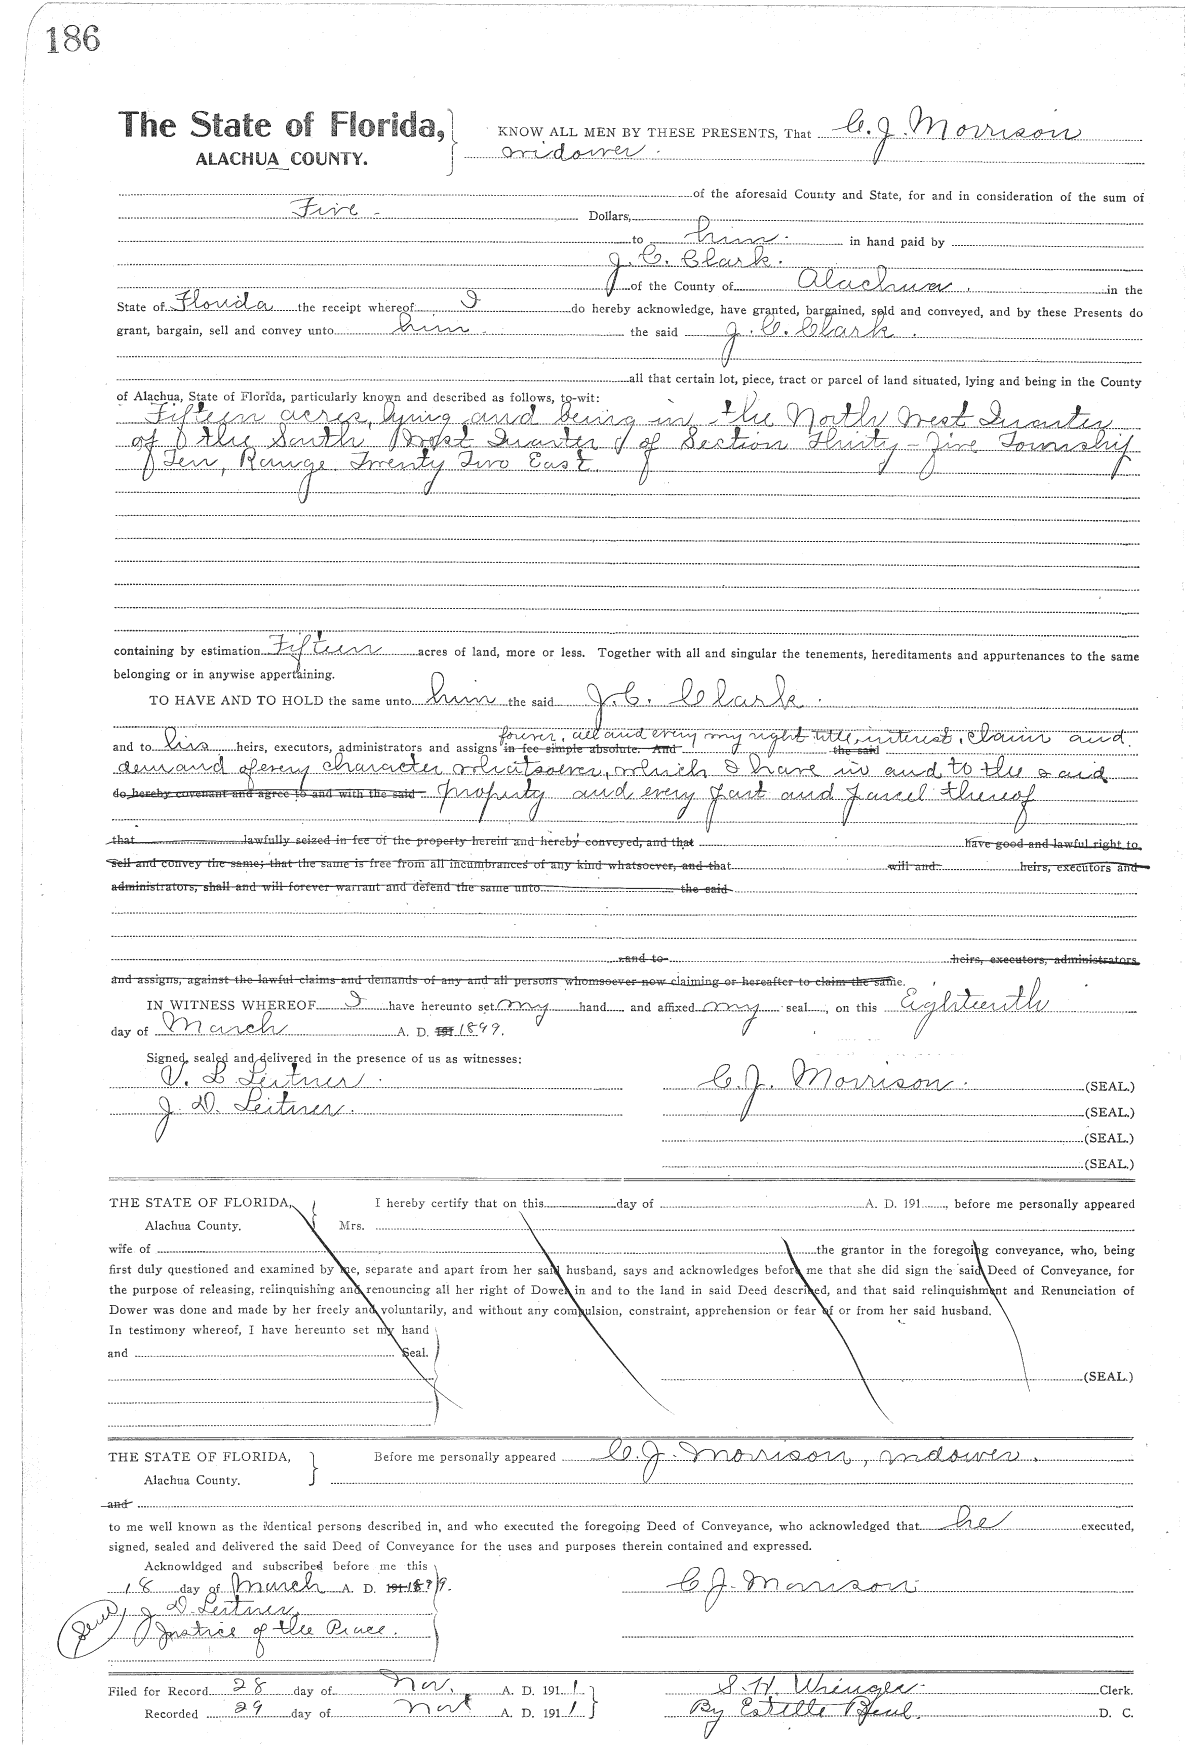 186
The State of Florida, KNOW ALL MEN BY THESE PRESENTS, That C. J. Morrison
ALACHUA COUNTY. widower.
of the aforesaid County and State, for and in consideration of the sum of
Five - Dollars,
to him. in hand paid by
J. C. Clark.
of the County of Alachua. in the
State of Florida the receipt whereof I do hereby acknowledge, have granted, bargained, sold and conveyed, and by these Presents do
grant, bargain, sell and convey unto him the said J. C. Clark.
all that certain lot, piece, tract or parcel of land situated, lying and being in the County
of Alachua, State of Florida, particularly known and described as follows, to-wit:
Fifteen acres, lying and being in the North West Quarter
of the South West Quarter of Section Thirty-Five Township
Ten, Range Twenty Two East
containing by estimation Fifteen acres of land, more or less. Together with all and singular the tenements, hereditaments and appurtenances to the same
belonging or in anywise appertaining.
TO HAVE AND TO HOLD the same unto him the said J. C. Clark.
forever, all and every my right title, interest, claim and
and to his heirs, executors, administrators and assigns in fee simple absolute. And the said
demand of every character whatsoever, which I have in and to the said
do hereby covenant and agree to and with the said property and every part and parcel thereof
that lawfully seized in fee of the property herein and hereby conveyed, and that have good and lawful right to
sell and convey the same; that the same is free from all incumbrances of any kind whatsoever, and that will and heirs, executors and
administrators, shall and will forever warrant and defend the same unto the said
and to heirs, executors, administrators
and assigns, against the lawful claims and demands of any and all persons whomsoever now claiming or hereafter to claim the same.
IN WITNESS WHEREOF I have hereunto set my hand and affixed my seal, on this Eighteenth
day of March A. D. 191 1899.
Signed, sealed and delivered in the presence of us as witnesses:
V. L. Leitner. C. J. Morrison. (SEAL.)
J. D. Leitner. (SEAL.)
(SEAL.)
(SEAL.)
THE STATE OF FLORIDA, I hereby certify that on this day of A. D. 191 , before me personally appeared
Alachua County. Mrs.
wife of the grantor in the foregoing conveyance, who, being
first duly questioned and examined by me, separate and apart from her said husband, says and acknowledges before me that she did sign the said Deed of Conveyance, for
the purpose of releasing, relinquishing and renouncing all her right of Dower in and to the land in said Deed described, and that said relinquishment and Renunciation of
Dower was done and made by her freely and voluntarily, and without any compulsion, constraint, apprehension or fear of or from her said husband.
In testimony whereof, I have hereunto set my hand
and Seal.
(SEAL.)
THE STATE OF FLORIDA, Before me personally appeared C. J. Morrison, widower.
Alachua County.
and
to me well known as the identical persons described in, and who executed the foregoing Deed of Conveyance, who acknowledged that he executed,
signed, sealed and delivered the said Deed of Conveyance for the uses and purposes therein contained and expressed.
Acknowldged and subscribed before me this
18 day of March A. D. 191 1899. C. J. Morrison
Seal J. D. Leitner,
Justice of the Peace.
Filed for Record 28 day of Nov. A. D. 1911 S. H. Wienges. Clerk.
Recorded 29 day of Nov A. D. 1911 By Estelle D. C.